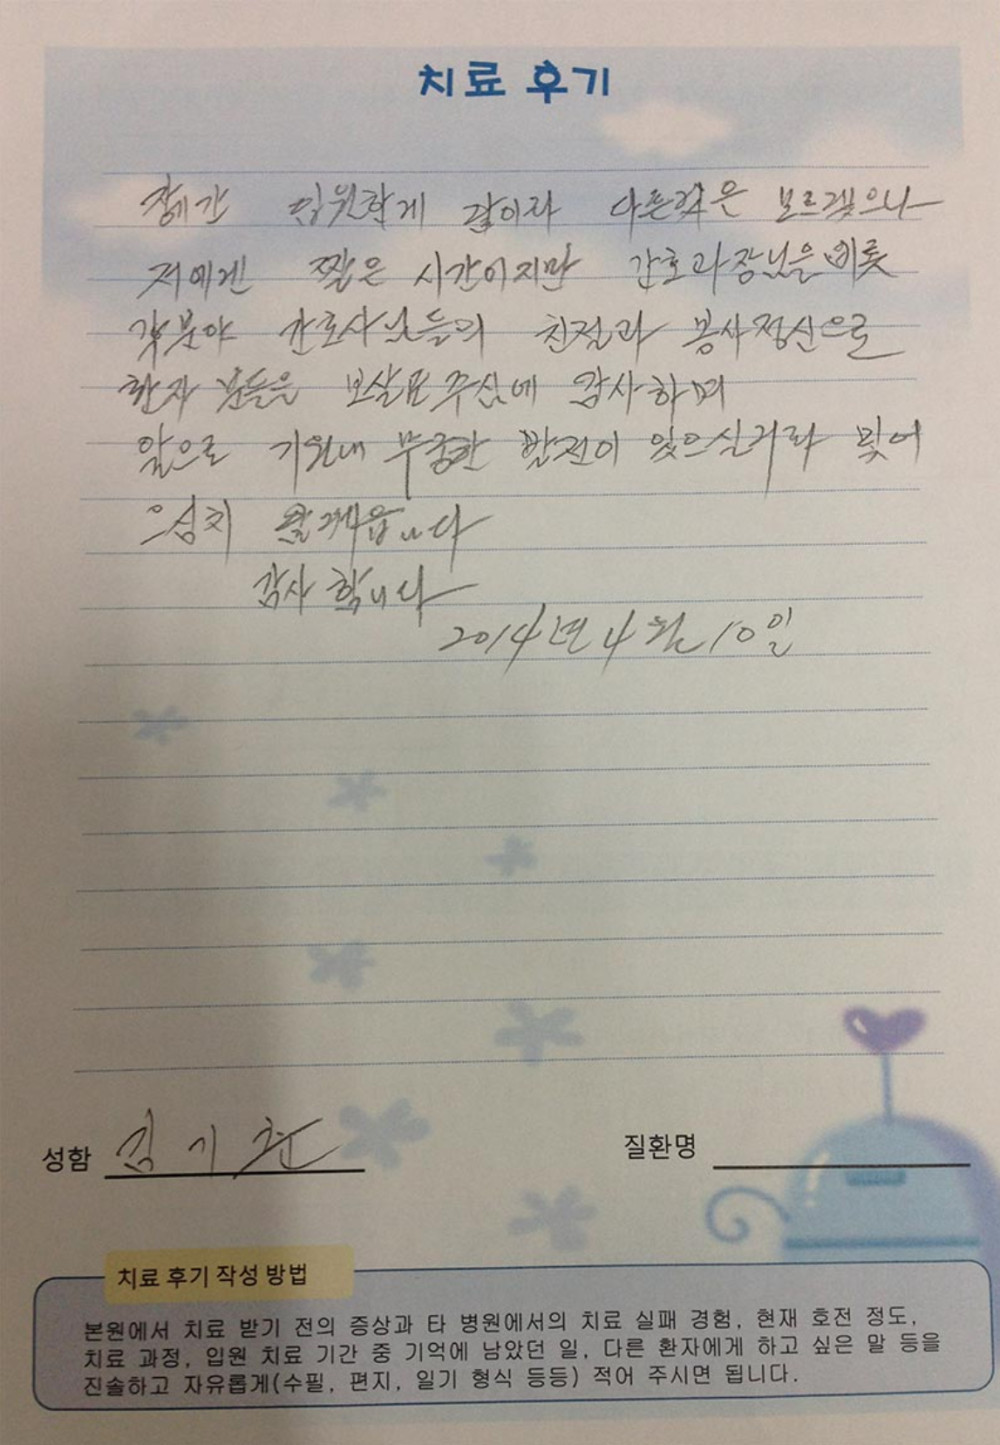 치료 후기
입원한게 같이라 다른것은 모르겠으나
저에겐 짧은 시간이지만 간호과장님은 비롯
각분야 간호사님들의 친절과 봉사정신으로
환자 분들은 보살펴주심에 감사하며
앞으로 기원내 무궁한 발전이 있으실거라 믿어
감사 합니다
2014년 4월 10일
성함 김기
질환명
치료 후기 작성 방법
본원에서 치료 받기 전의 증상과 타 병원에서의 치료 실패 경험, 현재 호전 정도,
치료 과정, 입원 치료 기간 중 기억에 남았던 일, 다른 환자에게 하고 싶은 말 등을
진솔하고 자유롭게(수필, 편지, 일기 형식 등등) 적어 주시면 됩니다.